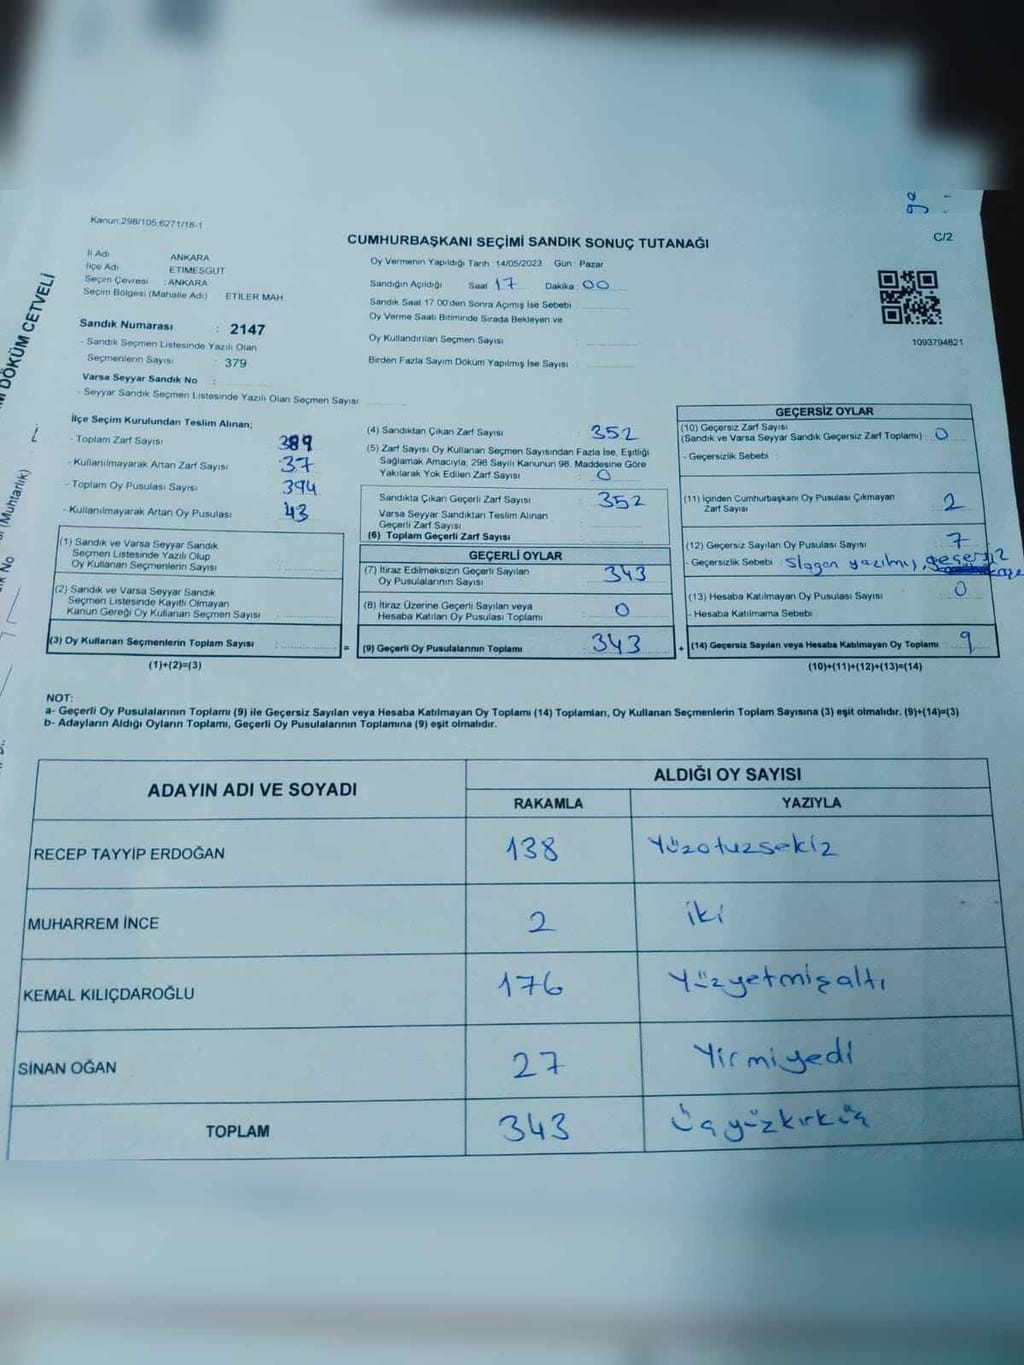 Kanun:298/105;6271/18-1
CUMHURBAŞKANI SEÇİMİ SANDIK SONUÇ TUTANAĞI
C/2
DÖKÜM CETVELİ
(Muhtarlık)
İl Adı ANKARA
İlçe Adı ETİMESGUT
Seçim Çevresi : ANKARA
Seçim Bölgesi (Mahalle Adı) ETİLER MAH
Sandık Numarası : 2147
- Sandık Seçmen Listesinde Yazılı Olan
Seçmenlerin Sayısı : 379
Varsa Seyyar Sandık No :
- Seyyar Sandık Seçmen Listesinde Yazılı Olan Seçmen Sayısı
Oy Vermenin Yapıldığı Tarih : 14/05/2023 Gün : Pazar
Sandığın Açıldığı Saat 17 Dakika 00
Sandık Saat 17.00'den Sonra Açımış İse Sebebi
Oy Verme Saati Bitiminde Sırada Bekleyen ve
Oy Kullandırılan Seçmen Sayısı :
Birden Fazla Sayım Döküm Yapılmış İse Sayısı :
1093794821
İlçe Seçim Kurulundan Teslim Alınan;
- Toplam Zarf Sayısı 389
- Kullanılmayarak Artan Zarf Sayısı 37
- Toplam Oy Pusulası Sayısı 394
- Kullanılmayarak Artan Oy Pusulası 43
(1) Sandık ve Varsa Seyyar Sandık
Seçmen Listesinde Yazılı Olup
Oy Kullanan Seçmenlerin Sayısı :
(2) Sandık ve Varsa Seyyar Sandık
Seçmen Listesinde Kayıtlı Olmayan
Kanun Gereği Oy Kullanan Seçmen Sayısı :
(3) Oy Kullanan Seçmenlerin Toplam Sayısı :
(1)+(2)=(3)
=
(4) Sandıktan Çıkan Zarf Sayısı : 352
(5) Zarf Sayısı Oy Kullanan Seçmen Sayısından Fazla İse, Eşitliği
Sağlamak Amacıyla; 298 Sayılı Kanunun 98. Maddesine Göre
Yakılarak Yok Edilen Zarf Sayısı : 0
Sandıkta Çıkan Geçerli Zarf Sayısı : 352
Varsa Seyyar Sandıktan Teslim Alınan
Geçerli Zarf Sayısı :
(6) Toplam Geçerli Zarf Sayısı :
GEÇERLİ OYLAR
(7) İtiraz Edilmeksizin Geçerli Sayılan
Oy Pusulalarının Sayısı : 343
(8) İtiraz Üzerine Geçerli Sayılan veya
Hesaba Katılan Oy Pusulaları Toplamı : 0
(9) Geçerli Oy Pusulalarının Toplamı : 343
+
GEÇERSİZ OYLAR
(10) Geçersiz Zarf Sayısı
(Sandık ve Varsa Seyyar Sandık Geçersiz Zarf Toplamı) : 0
- Geçersizlik Sebebi :
(11) İçinden Cumhurbaşkanı Oy Pusulası Çıkmayan
Zarf Sayısı : 2
(12) Geçersiz Sayılan Oy Pusulası Sayısı : 7
- Geçersizlik Sebebi : Slogan yazılmış, geçersiz
(13) Hesaba Katılmayan Oy Pusulası Sayısı : 0
- Hesaba Katılmama Sebebi :
(14) Geçersiz Sayılan veya Hesaba Katılmayan Oy Toplamı : 9
(10)+(11)+(12)+(13)=(14)
NOT:
a- Geçerli Oy Pusulalarının Toplamı (9) ile Geçersiz Sayılan veya Hesaba Katılmayan Oy Toplamı (14) Toplamları, Oy Kullanan Seçmenlerin Toplam Sayısına (3) eşit olmalıdır. (9)+(14)=(3)
b- Adayların Aldığı Oyların Toplamı, Geçerli Oy Pusulalarının Toplamına (9) eşit olmalıdır.
ADAYIN ADI VE SOYADI ALDIĞI OY SAYISI
RAKAMLA YAZIYLA
RECEP TAYYİP ERDOĞAN 138 Yüzotuzsekiz
MUHARREM İNCE 2 iki
KEMAL KILIÇDAROĞLU 176 Yüzyetmişaltı
SİNAN OĞAN 27 Yirmiyedi
TOPLAM 343 Üçyüzkırküç